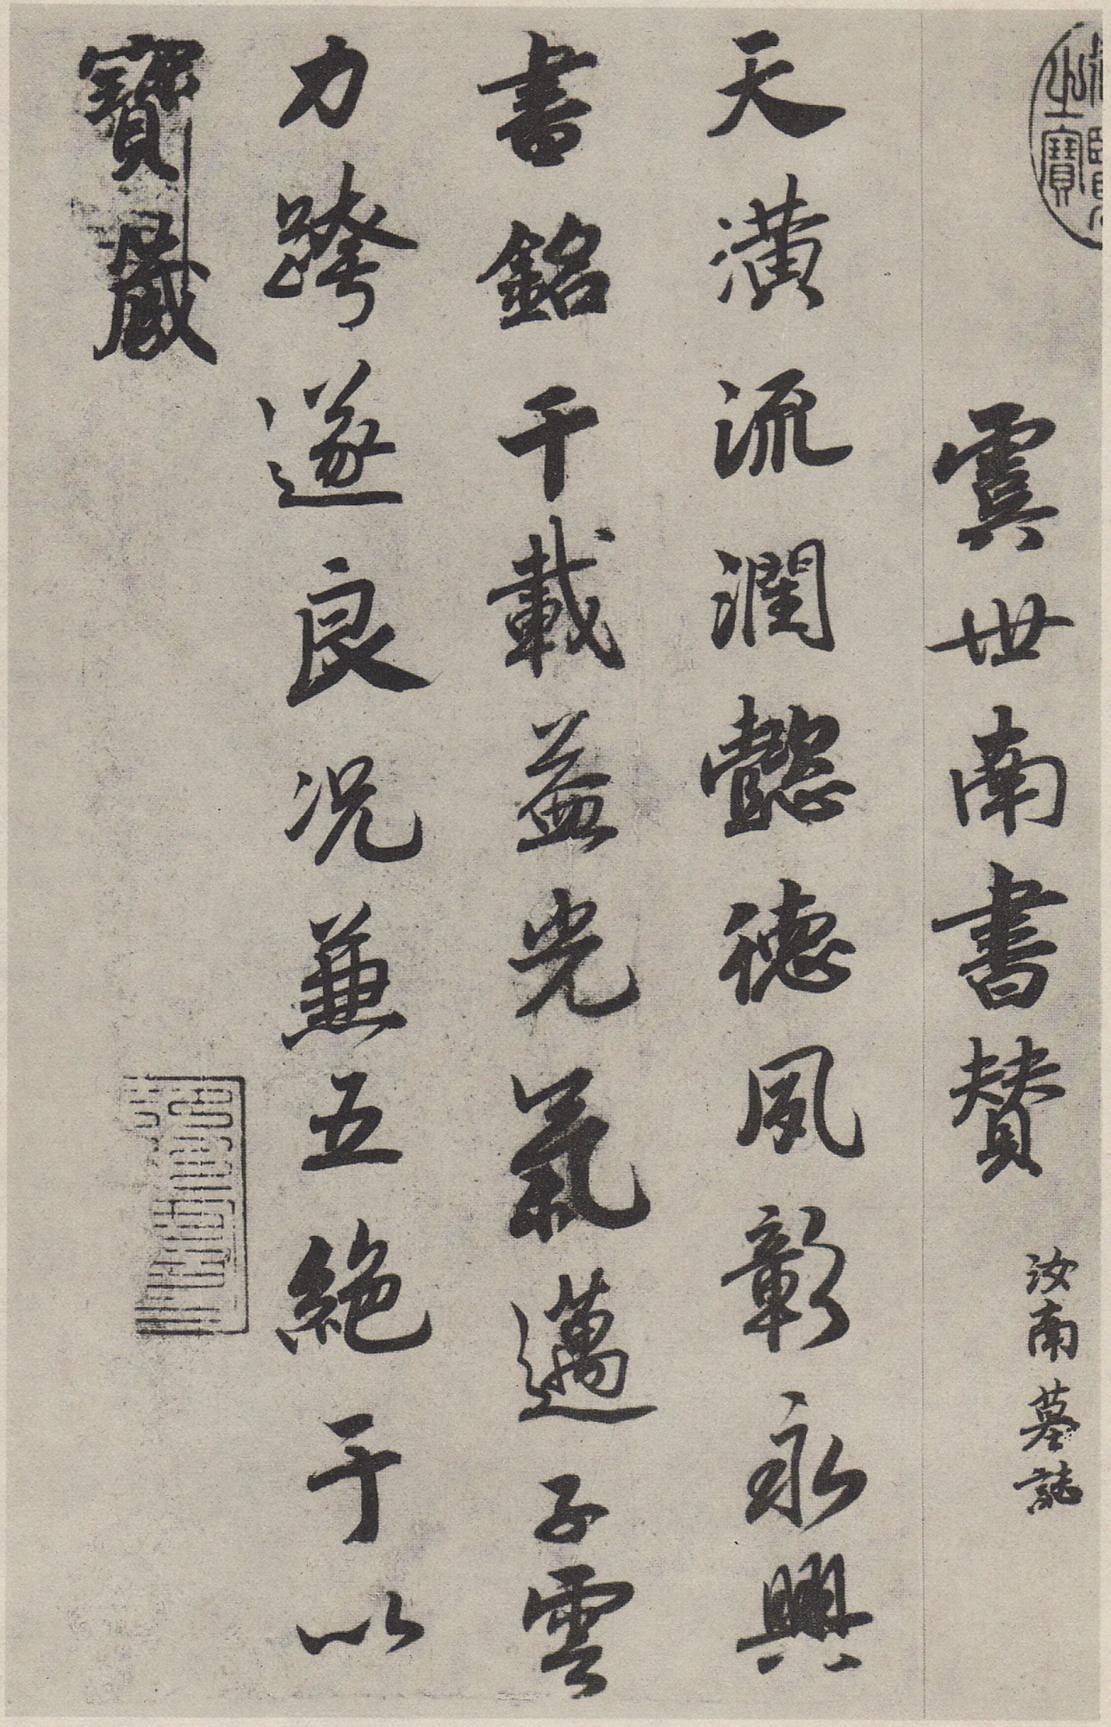 虞世南書贊
汝南墓誌
天潢流潤懿德夙彰永興
書銘千載益光氣邁子雲
力跨遂良況兼五絕于以
寶藏
之寶